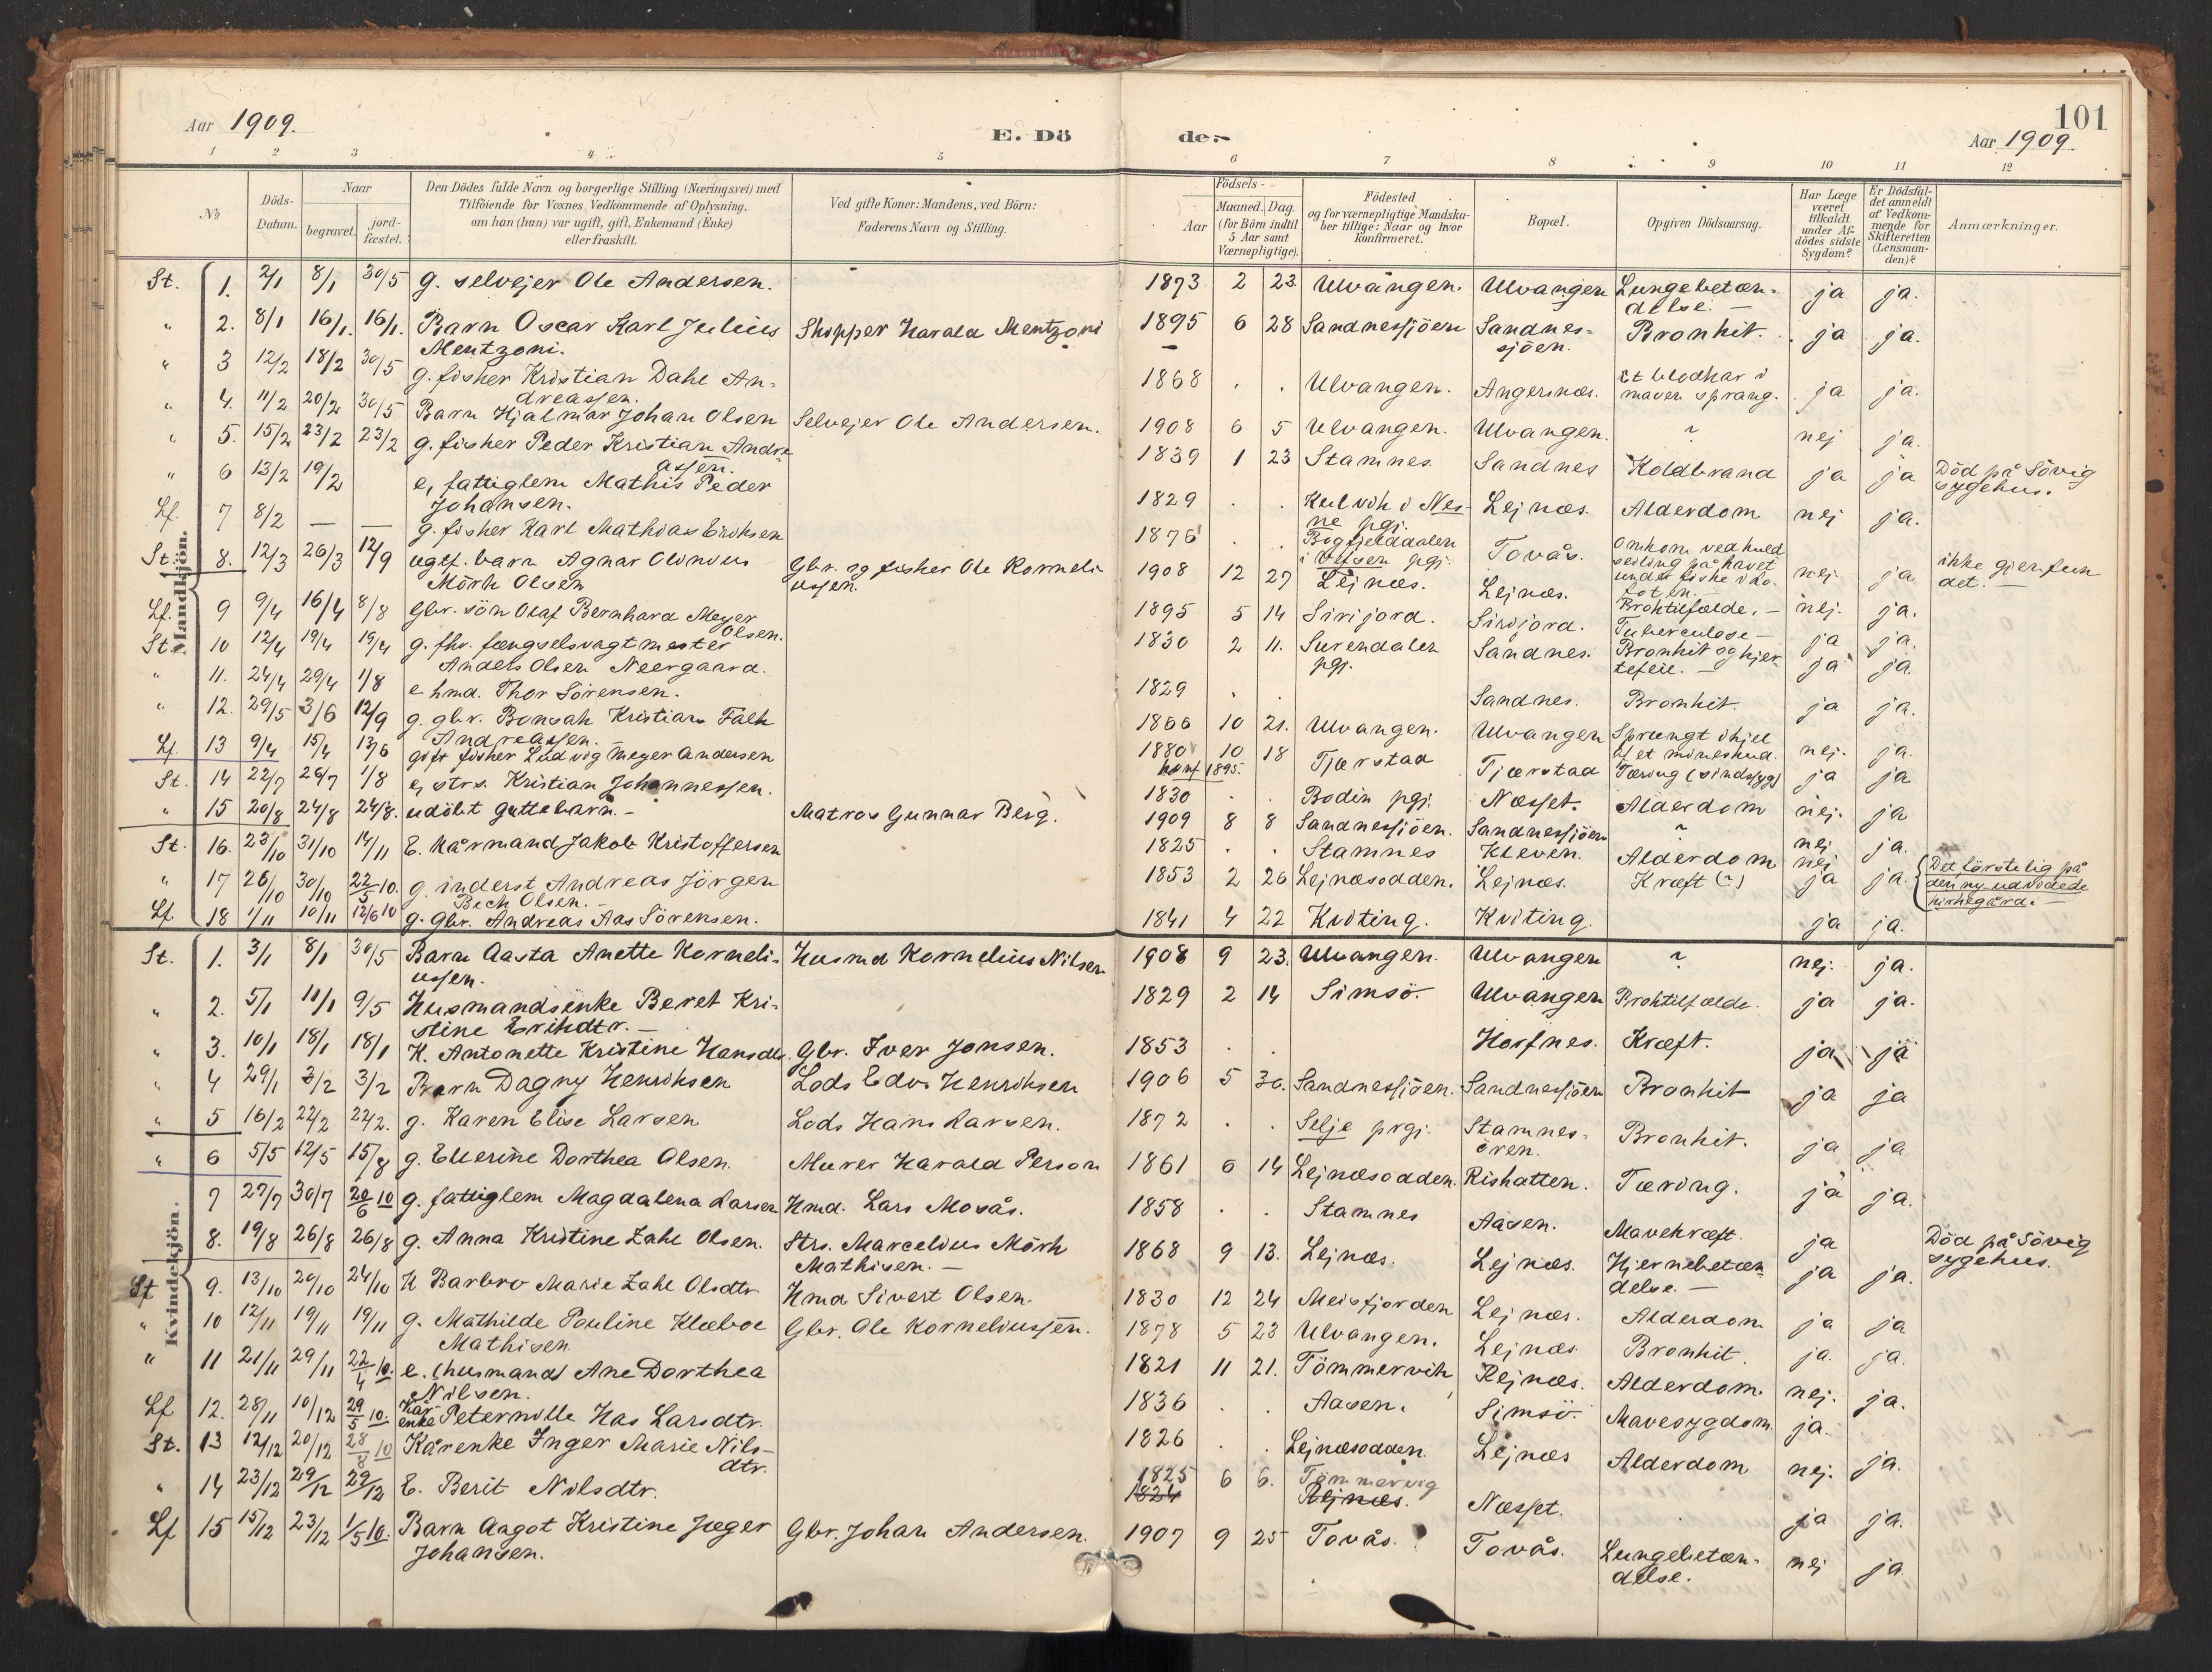 101
Aar 1909.
E. Döde:-
Aar 1909.
1 2 3 4 5 6 7 8 9 10 11 12
No
Döds-Datum.
Naar
begravet.
jord-fæstet.
Den Dödes fulde Navn og borgerlige Stilling (Næringsvei) med
Tilföiende for Voxnes Vedkommende af Oplysning,
om han (han) var ugift, gift, Enkemand (Enke)
eller fraskilt.
Ved gifte Koner: Mandens, ved Börn:
Faderens Navn og Stilling.
Födsels-
Aar
Maaned. Dag.
(for Börn indtil
5 Aar samt
Værnepligtige).
Födested
og for værnepligtige Mandska-
ber tillige: Naar og hvor
konfirmeret.
Bopæl.
Opgiven Dödsaarsag.
Har Læge
været
tilkaldt
under Af-
dödes sidste
Sygdom?
Er Dödsfal-
det anmeldt
af Vedkom-
mende for
Skifteretten
(Lensman-
den)?
Anmærkninger.
Mandkjön.
St. 1. 2/1 8/1 30/5 g. selvejer Ole Andersen. 1873 2 23 Ulvangen. Ulvangen Lungebetæn-
delse. ja ja.
" 2. 8/1 16/1. 16/1. Barn Oscar Karl Julius Skipper Harald Mentzoni 1895 6 28 Sandnessjöen Sandnes- Bronkit. ja ja.
Mentzoni. sjöen.
" 3 12/2 18/2 30/5 g. fisker Kristian Dahl An- 1868 . . Ulvangen. Angersnæs. Et blodkar i
dreassen. maven sprang. ja ja.
" 4. 11/2 20/2 30/5 Barn Hjalmar Johan Olsen Selvejer Ole Andersen. 1908 6 5 Ulvangen. Ulvangen. ? nej ja.
" 5. 15/2 23/2 23/2 g. fisker Peder Kristian Andre- 1839 1 23 Stamnes Sandnes Koldbrand ja ja Död på Sövig
assen. sygehus.
" 6 13/2 19/2 e, fattiglem Mathis Peder 1829 . . Kulvik i Nes- Lejnæs. Alderdom nej ja.
Johansen. ne pgj.
Lf. 7 8/2 — — g. fisker Karl Mathias Eriksen 1876 . . Bogfjelddalen Tovås. Omkom ved kuld
i Vefsen pgj. seiling på havet
under fiske i Lo-
foten. nej. ja ikke gjenfun
det. —
St. 8. 12/3 26/3 12/9 ugf. barn Agnar Olonius Gbr. og fisker Ole Korneli- 1908 12 27 Lejnæs. Lejnæs. Broktilfælde. — nej. ja.
Mörk Olsen ussen.
Lf. 9 9/4 16/4 8/8 Gbr. sön Olaf Bernhard Meyer 1895 5 14 Sirijord. Sirijord. Tuberculose — ja ja.
Olsen.
St. 10 12/4 19/4 19/4 g. fhv. fængselsvagtmester 1830 2 11. Surendalen Sandnes. Bronkit og hjer-
Anders Olsen Neergaard. pgj. tefeil. — ja ja
" 11. 24/4 29/4 1/8 e hmd. Thor Sörensen. 1829 . . Sandnes. Bronkit. ja ja.
" 12. 29/5 3/6 12/9 g. gbr. Bonsak Kristian Falk 1866 10 21. Ulvangen. Ulvangen Sprængt ihjel
Andreassen. — af et mineskud. nej. ja.
Lf. 13 9/4 15/4 13/6 gift fisker Ludvig Meyer Andersen 1880 10 18 Tjærstad Tjærstad Tæring (sindssyg) ja ja
konf 1895.
St. 14 22/7 26/7 1/8 e, strs. Kristian Johannessen. 1830 . . Bodin pgj. Næsset. Alderdom nej. ja
" 15 20/8 24/8 24/8. udöbt guttebarn. — Matros Gunnar Berg. 1909 8 8 Sandnessjöen. Sandnessjöen ? nej ja.
St. 16. 23/10 31/10 14/11 E. kårmand Jakob Kristoffersen 1825 . . Stamnes Kleven. Alderdom nej
" 17 26/10 30/10 22/5 10. g. inderst Andreas Jörgen 1853 2 26 Lejnæsodden. Lejnæs. Kræft (?) ja ja. Det förste lig på
Bech Olsen. — den ny udvidede
kirkegård. —
Lf 18 1/11 10/11 12/6 10 g. Gbr. Andreas Aas Sörensen. 1841 4 22 Kviting. Kviting. ja ja.
Kvindekjön.
St. 1. 3/1 8/1 30/5 Barn Aasta Anette Korneli- Husmd Kornelius Nilsen 1908 9 23. Ulvangen. Ulvangen ? nej. ja.
ussen.
" 2. 5/1 11/1 9/5 Husmandsenke Beret Kri- 1829 2 14 Simsö. Ulvangen Broktilfælde. ja ja.
stine Erikdtr. —
" 3. 10/1 18/1 18/1 K. Antonette Kristine Hansdtr. Gbr. Iver Jonsen. 1853 . . Horfnes. Kræft. ja ja
" 4 29/1 3/2 3/2 Barn Dagny Henriksen Lods Edv. Henriksen 1906 5 30. Sandnessjöen. Sandnessjöen Bronkit ja ja
" 5 16/2 22/2 22/2. g. Karen Elise Larsen Lods Hans Larsen. 1872 . . Selje prgj. Stamnes- Bronkit. ja ja
ören.
" 6 5/5 12/5 15/8 g. Ellerine Dorthea Olsen. Murer Harald Person 1861 6 14 Lejnæsodden. Rishatten. Tæring. ja ja.
7 27/7 30/7 20/6 10 g. fattiglem Magdalena Larsen Hmd. Lars Mosås. 1858 . . Stamnes Aasen. Mavekræft. ja Död på Sövig
sygehus.
8. 19/8 26/8 26/8 g. Anna Kristine Zahl Olsen. Strs. Marcelius Mörk 1868 9 13. Lejnæs. Lejnæs. Hjernebetæn-
Mathisen. — delse. — ja ja.
St 9. 13/10 20/10 24/10 K Barbro Marie Zahl Olsdtr Hmd Sivert Olsen. 1830 12 24 Meisfjorden Lejnæs. Alderdom ja ja
" 10 12/11 19/11 19/11 g. Mathilde Pauline Klæboe Gbr. Ole Korneliussen. 1878 5 23 Ulvangen. Lejnæs Bronkit. ja. ja.
Mathisen
" 11 21/11 29/11 22/4 10. e. (husmand Ane Dorthea 1821 11 21. Tömmervik Rejnæs. Alderdom. nej. ja.
Nilsen.
Lf 12. 28/11 10/12 29/5 10. Kår-
enke Peternille Has Larsdtr. 1836 . . Aasen. Simsö. Mavesygdom ja.
St. 13 12/12 20/12 28/8 10 Kårenke Inger Marie Nils- 1826 . . Lejnæsodden. Lejnæs Alderdom nej. ja.
dtr.
" 14 23/12 29/12 29/12 E. Berit Nilsdtr. 1825 6 6. Tömmervig Næsset. ja ja.
1824 Rejnæs.
Lf 15 15/12 23/12 1/5 10. Barn Aagot Kristine Jæger Gbr. Johan Andersen. 1907 9 25 Tovås. Tovås. Lungebetæn-
Johansen. delse. nej ja